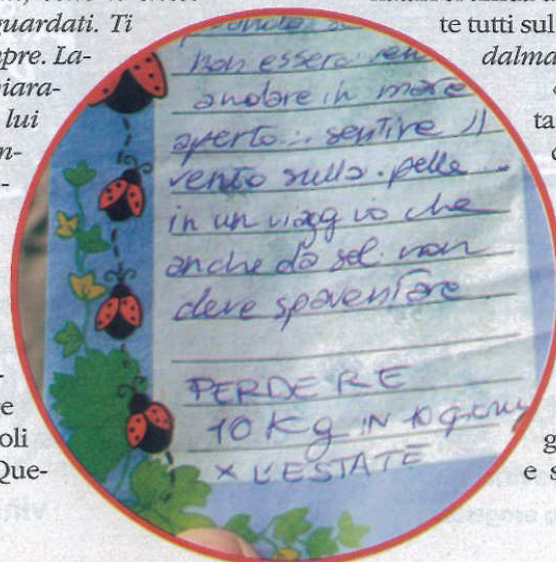 guardati. Ti
pre. La-
iara-
lui
n-
e
oli
Que-
non essere
andare in mare
aperto... sentire il
vento sulla pelle ..
in un viaggio che
anche da sol. non
deve spaventare
PERDERE
10 Kg IN 10 giorni
X L'ESTATE
te tutti sul
dalma
ta
g
e s